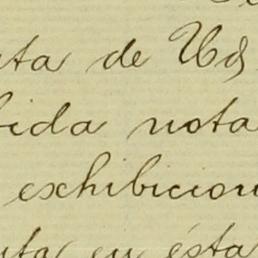 ta de Uds
bida nota
exhibicion
ta en ésta